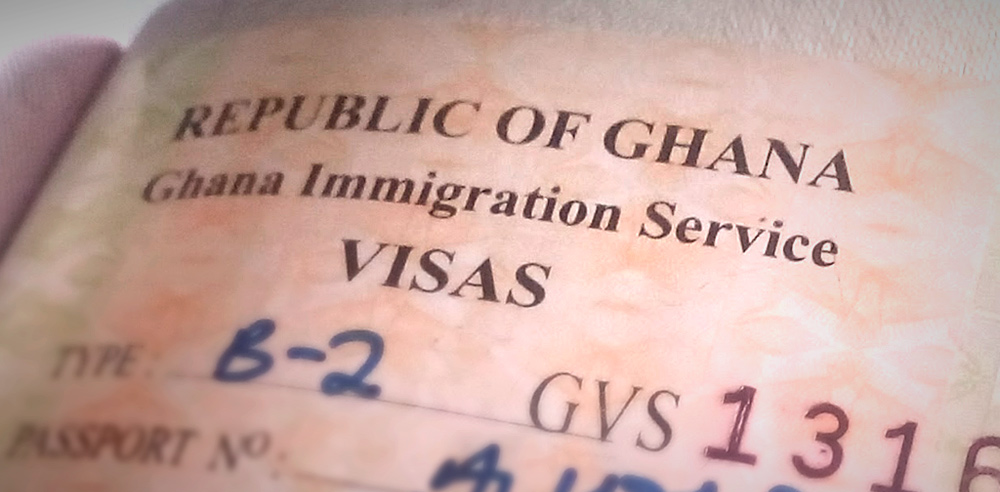 REPUBLIC OF GHANA
Ghana Immigration Service
VISAS
TYPE: B-2 GVS 1316
PASSPORT Nº: